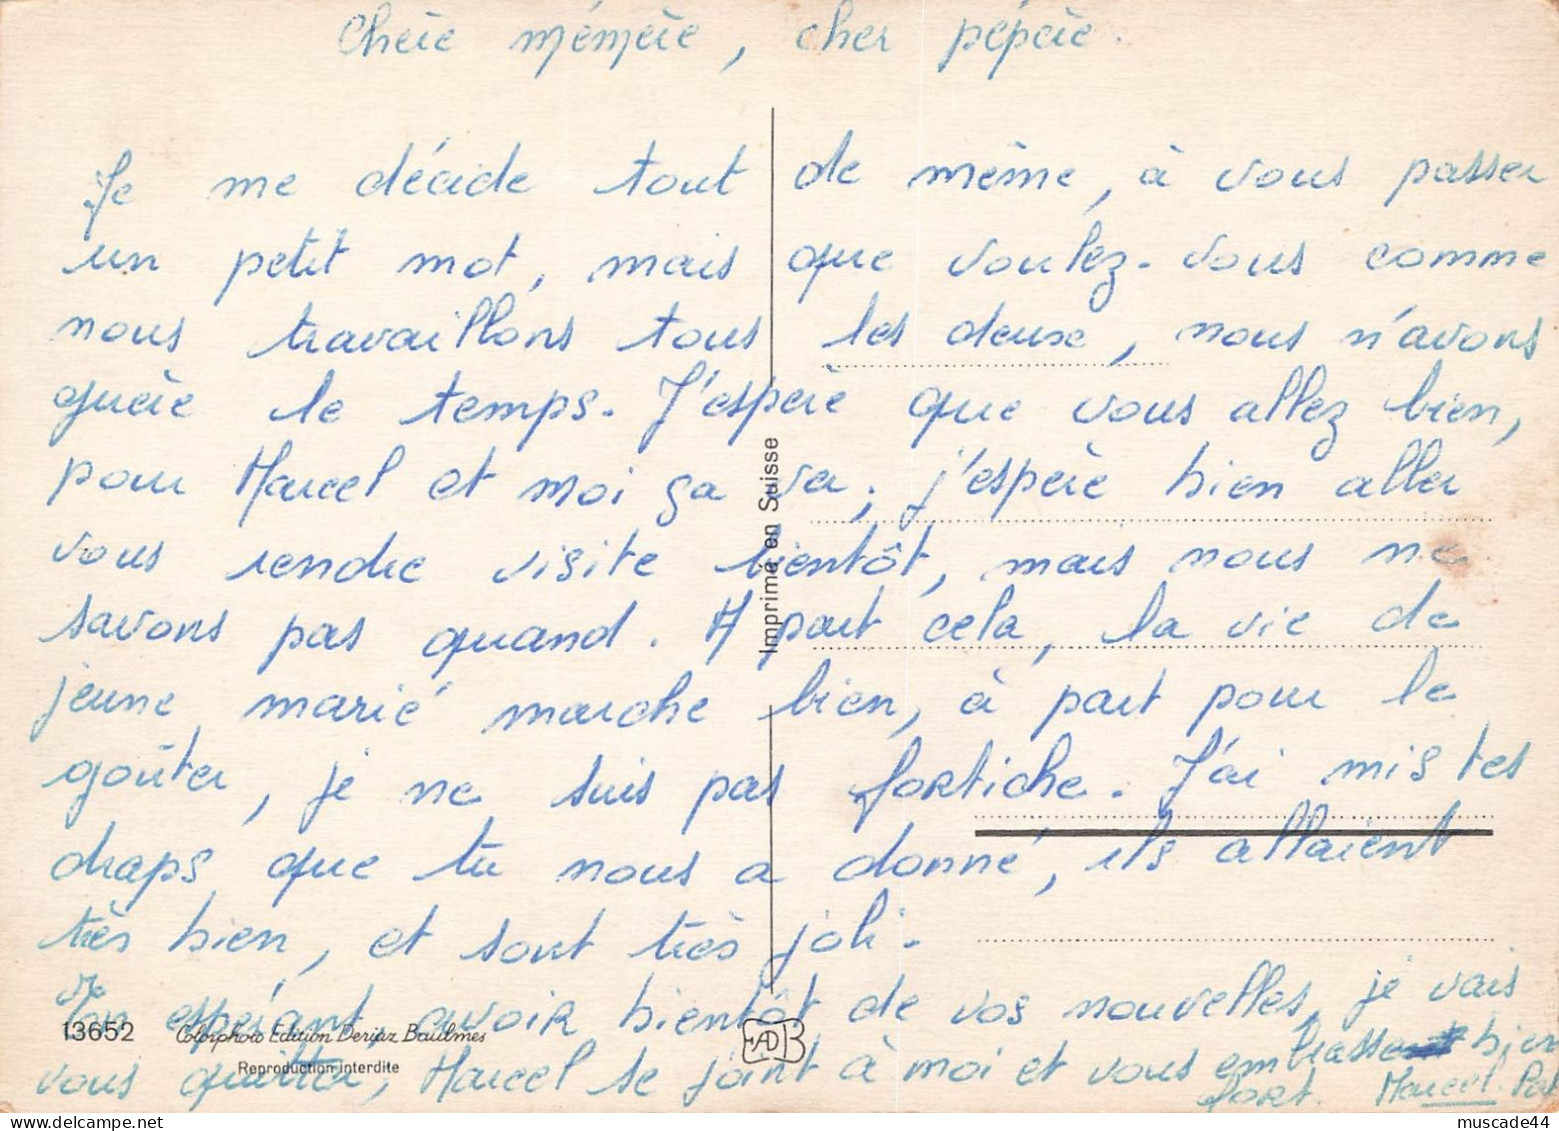 Chère mémère, cher pépère.
Je me décide tout de même, à vous passer
un petit mot, mais que voulez-vous comme
nous travaillons tous les deux, nous n'avons
guère le temps. J'espère que vous allez bien,
pour Marcel et moi ça va, j'espère bien aller
vous rendre visite bientôt, mais nous ne
savons pas quand. A part cela, la vie de
jeune marié marche bien, à part pour le
goûter, je ne suis pas fortiche. J'ai mis tes
draps que tu nous a donné, ils allaient
très bien, et sont très joli.
En espérant avoir bientôt de vos nouvelles, je vais
vous quitter, Marcel se joint à moi et vous embrasse bien
fort. Marcel. Pat
Imprimé en Suisse
13652 Colorphoto Edition Deriaz Baulmes
Reproduction interdite
EADB
muscade44